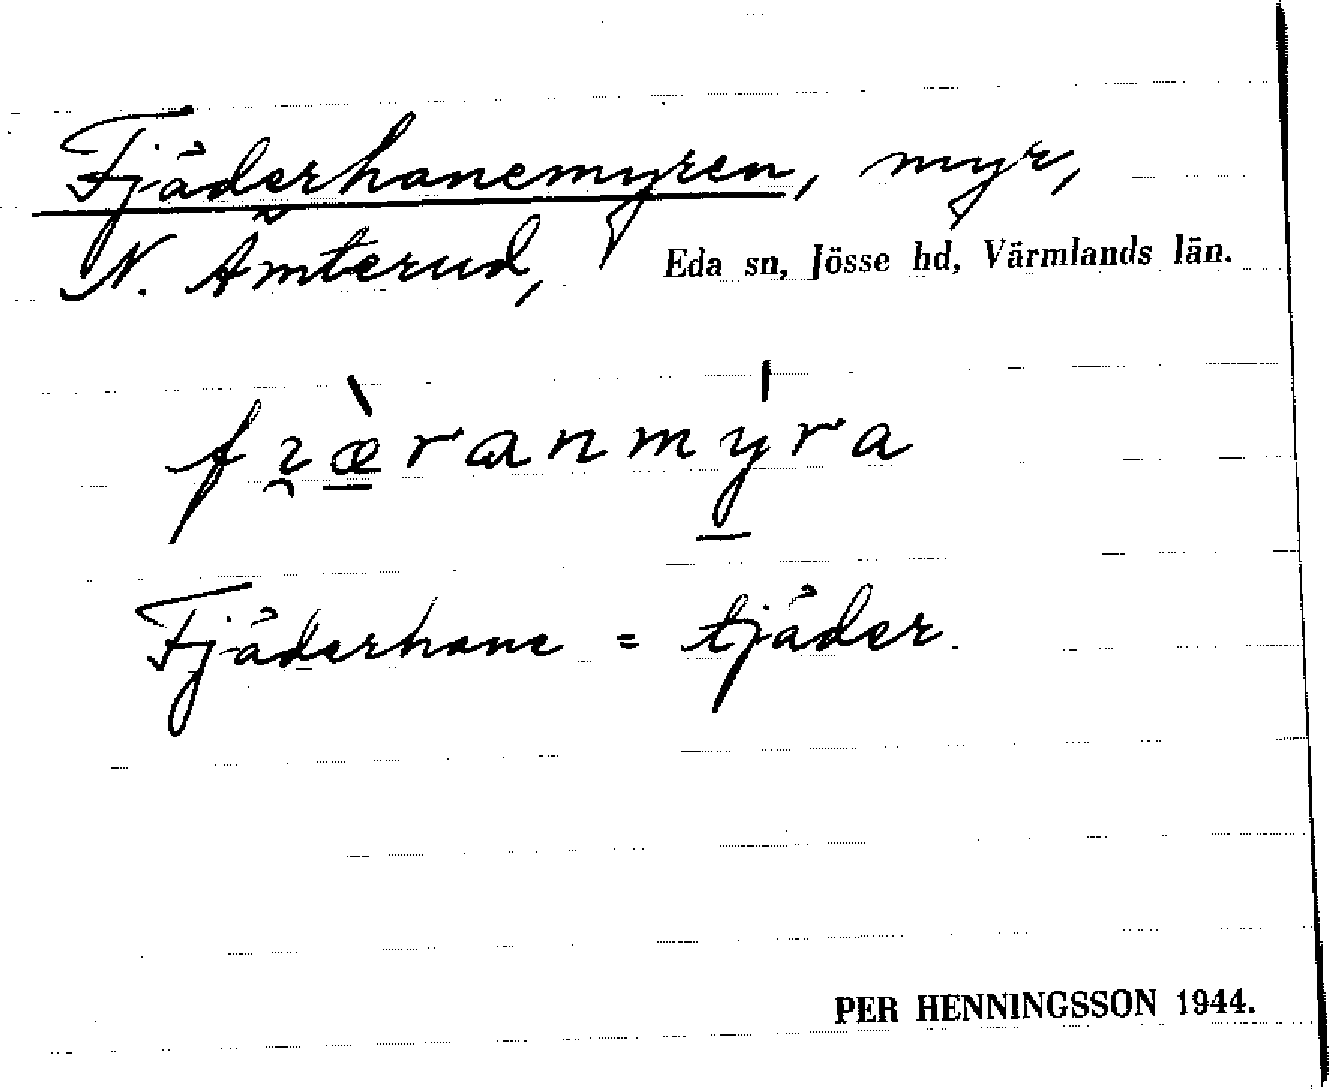 Fjäderhanemyren, myr,
N. Åmterud, Eda sn, Jösse hd, Värmlands län.
Fjäderhane = tjäder.
PER HENNINGSSON 1944.